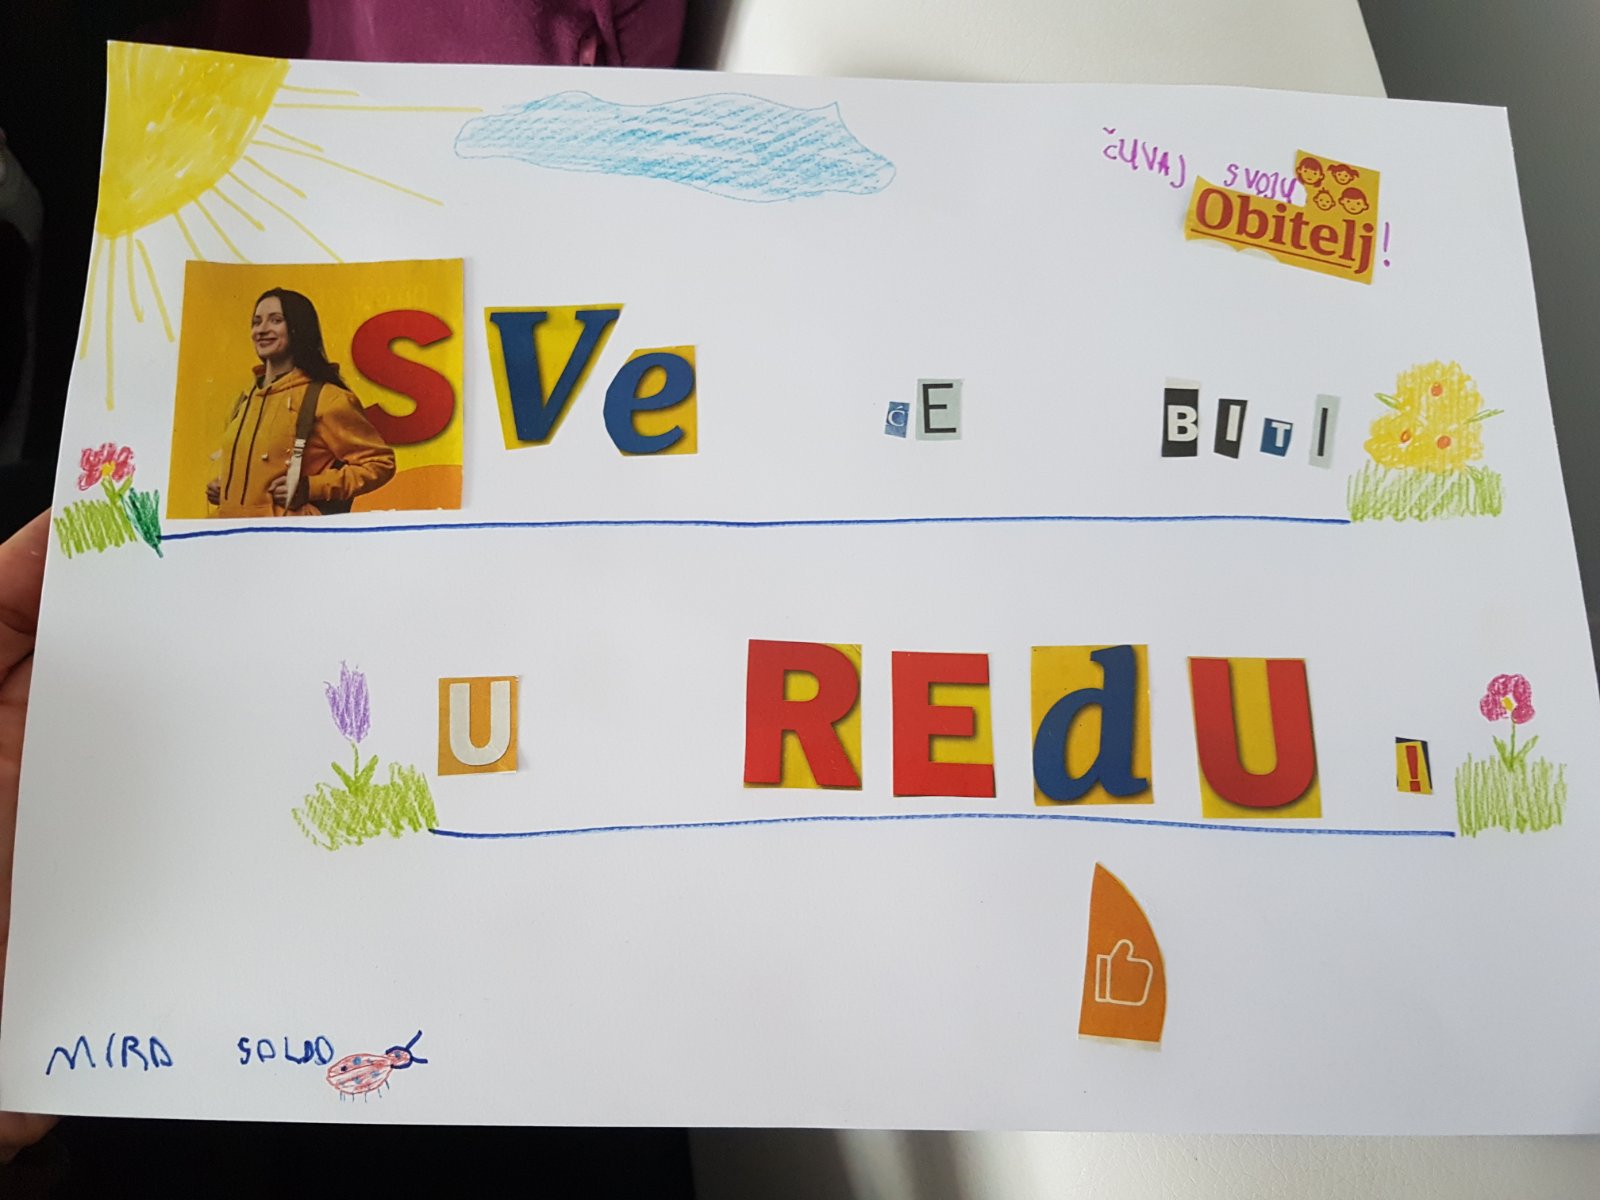 ČUVAJ SVOJU
Obitelj!
SVe ĆE BITI
U REdU !
MIRA